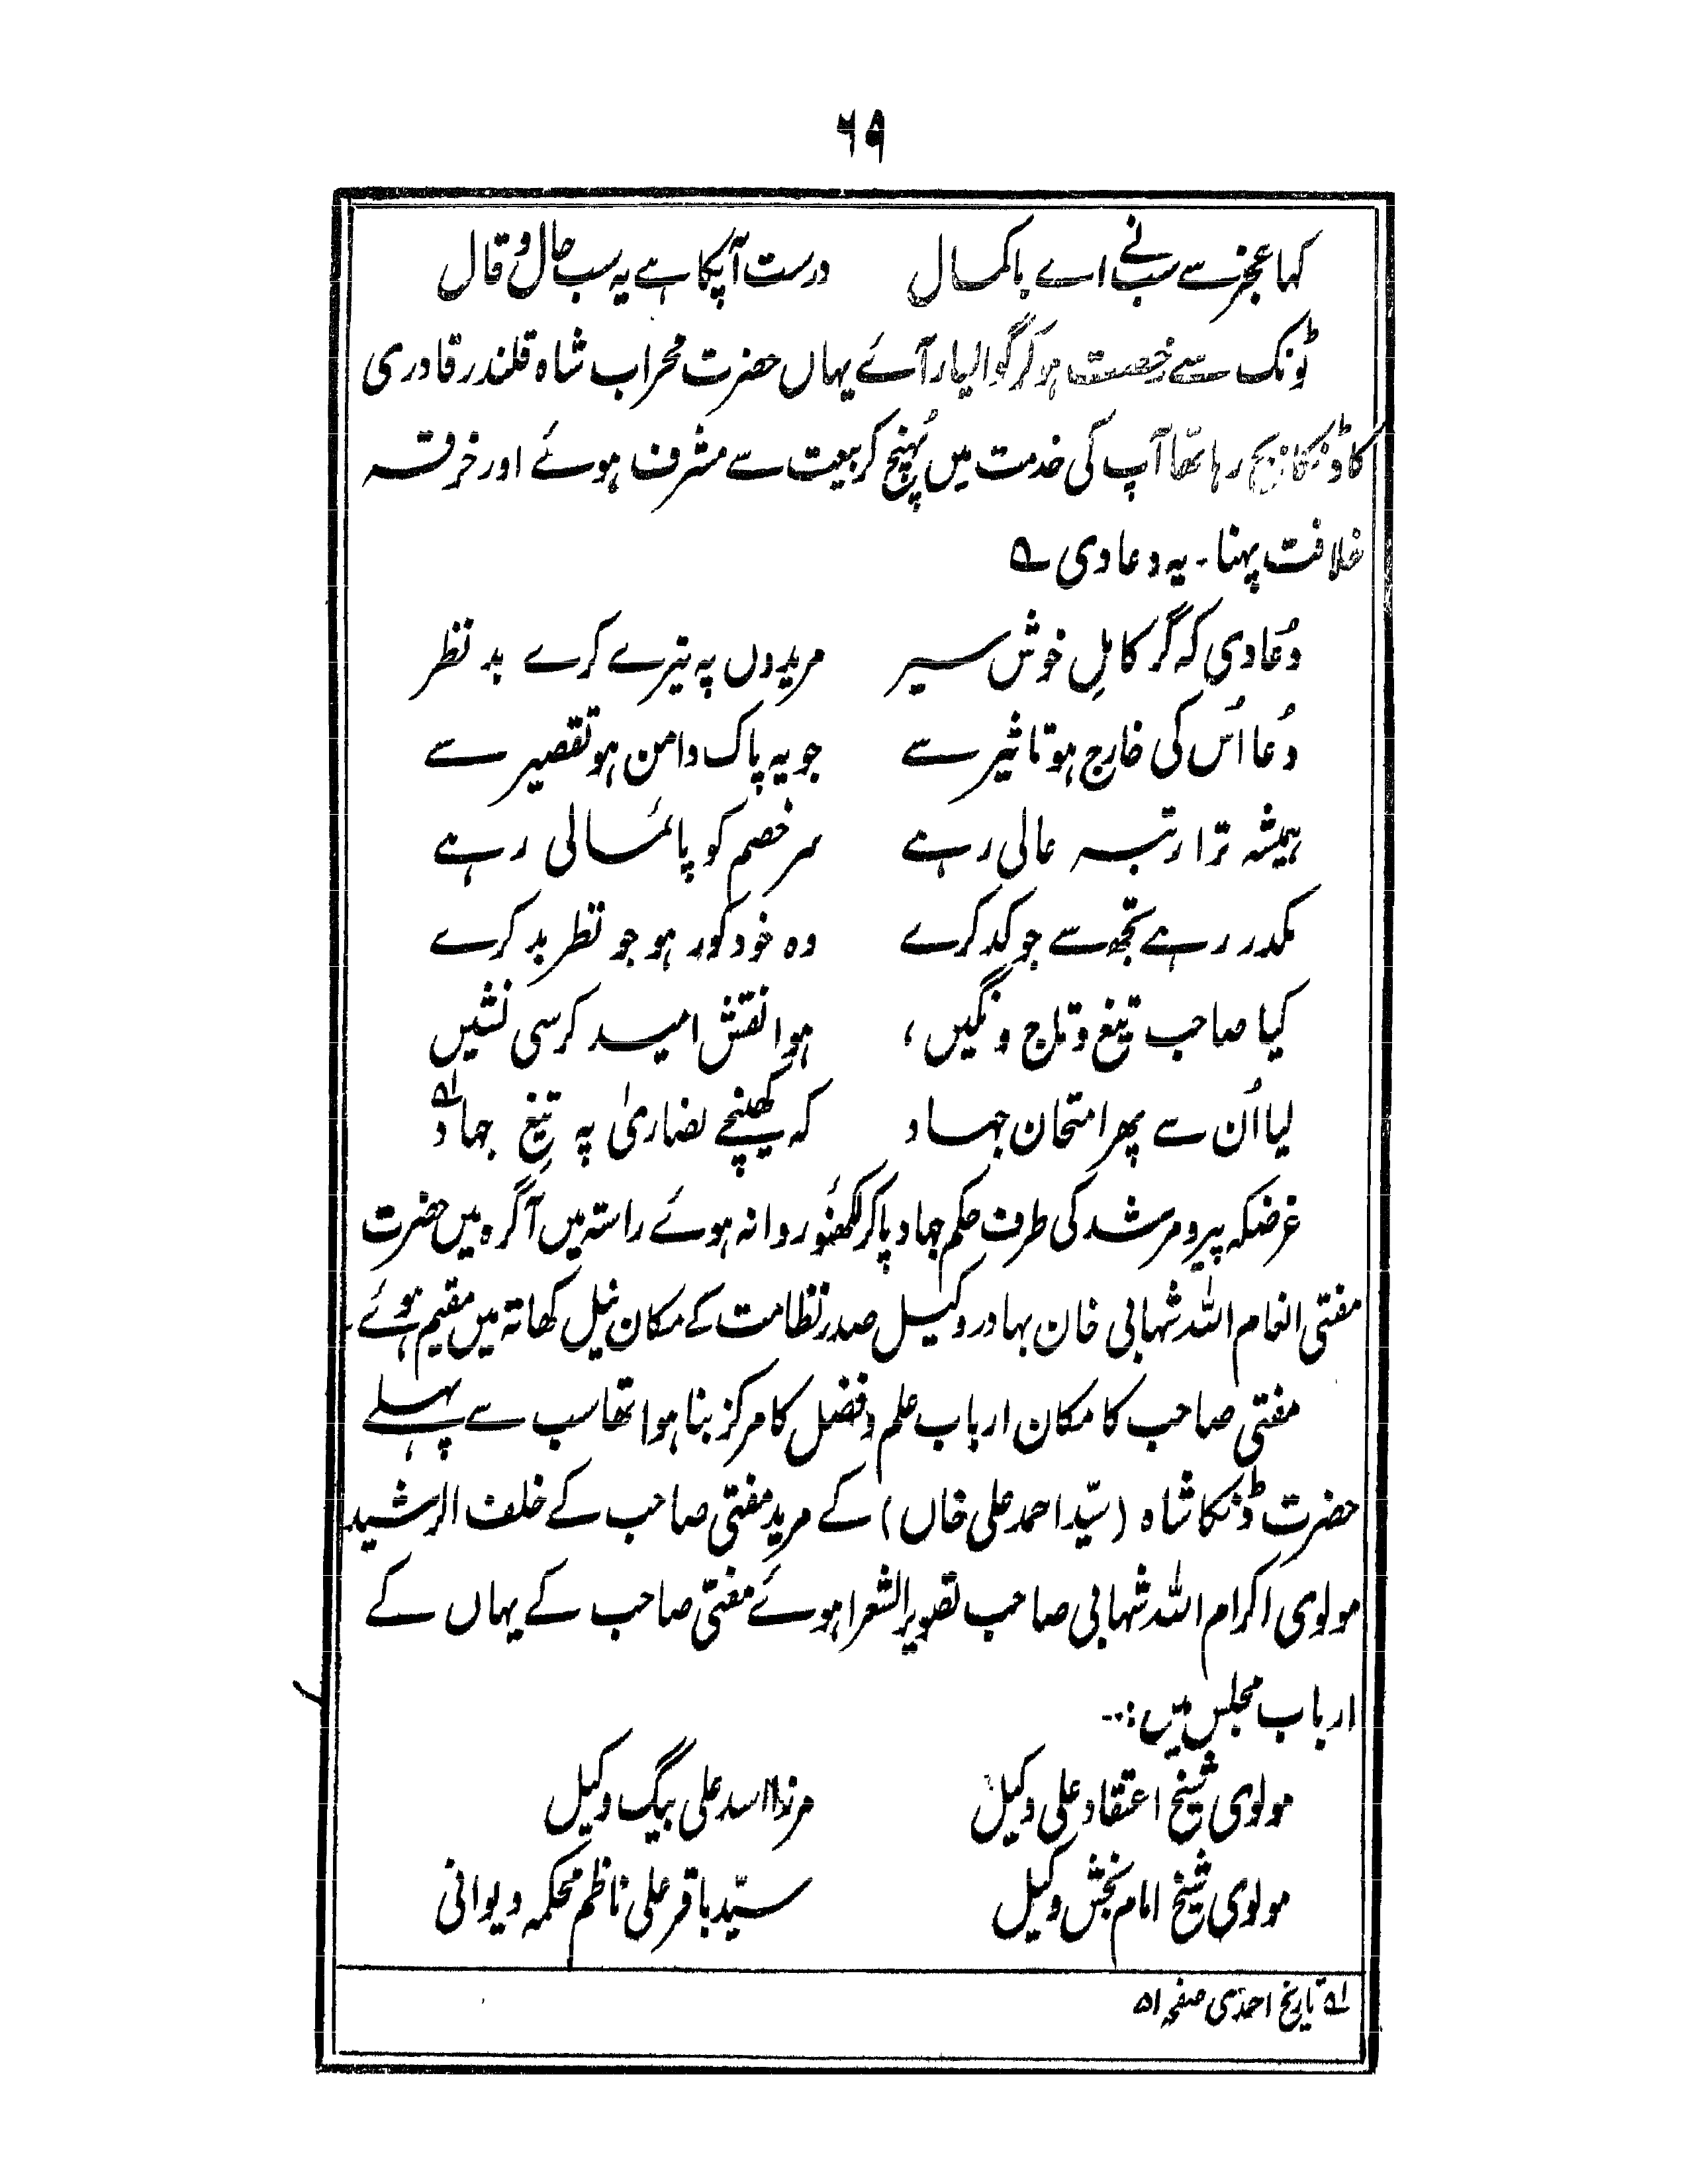 ۶۹
کہا عجز سے سب نے اے باکمال درست آپکا ہے یہ سب حال و قال
ٹونک سے رخصت ہو کر گوالیار آئے یہاں حضرت محراب شاہ قلندر قادری
کا ڈنکا بج رہا تھا آپ کی خدمت میں پُہنچ کر بیعت سے مشرف ہوئے اور خرقہ
خلافت پہنا۔ یہ دعا دی ؎
دُعا دی کہ گر کاملِ خوش سیر مریدوں پہ تیرے کرے بد نظر
دُعا اُس کی خارج ہو تاثیر سے جو یہ پاک دامن ہو تقصیر سے
ہمیشہ ترا رتبہ عالی رہے سر خصم کو پائمالی رہے
مکدر رہے تجھ سے جو کد کرے وہ خود کور ہو جو نظر بد کرے
کیا صاحب تیغ و تاج و نگیں، ہوا نقش امید کرسی نشیں
لیا اُن سے پھر امتحان جہاد کہ کھینچے نصاریٰ پہ تیغِ جہاد ؎۱
غرضکہ پیر و مرشد کی طرف حکم جہاد پا کر لکھنؤ روانہ ہوئے راستہ میں آگرہ میں حضرت
مفتی انعام اللہ شہابی خان بہادر وکیل صدر نظامت کے مکان نیل کھاتہ میں مقیم ہوئے۔
مفتی صاحب کا مکان ارباب علم و فضل کا مرکز بنا ہوا تھا سب سے پہلے
حضرت ڈنکا شاہ (سیّد احمد علی خاں) کے مرید مفتی صاحب کے خلف الرشید
مولوی اکرام اللہ شہابی صاحب تصویر الشعرا ہوئے مفتی صاحب کے یہاں کے
ارباب مجلس میں:۔۔
مولوی شیخ اعتقاد علی وکیل مرزا اسد علی بیگ وکیل
مولوی شیخ امام بخش وکیل سیّد باقر علی ناظم محکمہ دیوانی
؎۱ تاریخ احمدی صفحہ ۵۱